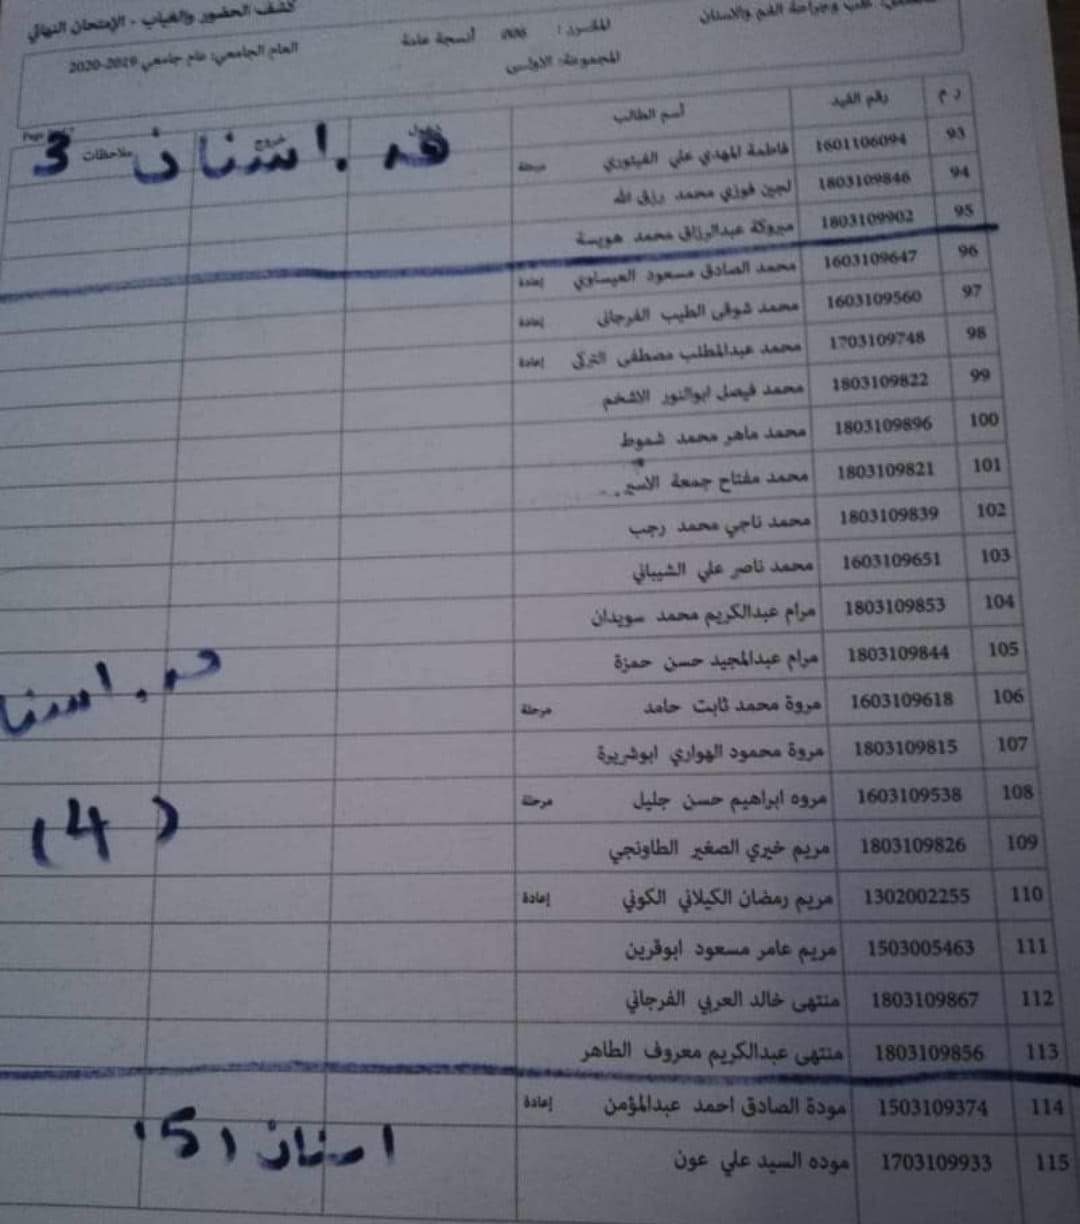 كشف الحضور والغياب - الإمتحان النهائي
طب وجراحة الفم والاسنان
المقرر: أنسجة عامة
العام الجامعي: عام جامعي 2019-2020
المجموعة: الاولى
ر م رقم القيد أسم الطالب دخول خروج ملاحظات
ق.اسنان 3
93 1601106094 فاطمة المهدي علي الفيتوري مرحلة
94 1803109846 لجين فوزي محمد رزق الله
95 1803109902 مبروكة عبدالرزاق محمد هويسة
96 1603109647 محمد الصادق مسعود العيساوي إعادة
97 1603109560 محمد شوقي الطيب الفرجاني إعادة
98 1703109748 محمد عبدالمطلب مصطفى التركي إعادة
99 1803109822 محمد فيصل ابوالنور الاشخم
100 1803109896 محمد ماهر محمد شموط
101 1803109821 محمد مفتاح جمعة الاسير
102 1803109839 محمد ناجي محمد رجب
103 1603109651 محمد ناصر علي الشيباني
104 1803109853 مرام عبدالكريم محمد سويدان
105 1803109844 مرام عبدالمجيد حسن حمزة
106 1603109618 مروة محمد ثابت حامد مرحلة
107 1803109815 مروة محمود الهواري ابوشريرة
108 1603109538 مروه ابراهيم حسن جليل مرحلة
(4)
109 1803109826 مريم خيري الصغير الطاونجي
110 1302002255 مريم رمضان الكيلاني الكوني إعادة
111 1503005463 مريم عامر مسعود ابوقرين
112 1803109867 منتهى خالد العربي الفرجاني
113 1803109856 منتهى عبدالكريم معروف الطاهر
114 1503109374 مودة الصادق احمد عبدالمؤمن إعادة
115 1703109933 موده السيد علي عون
اسنان (5)